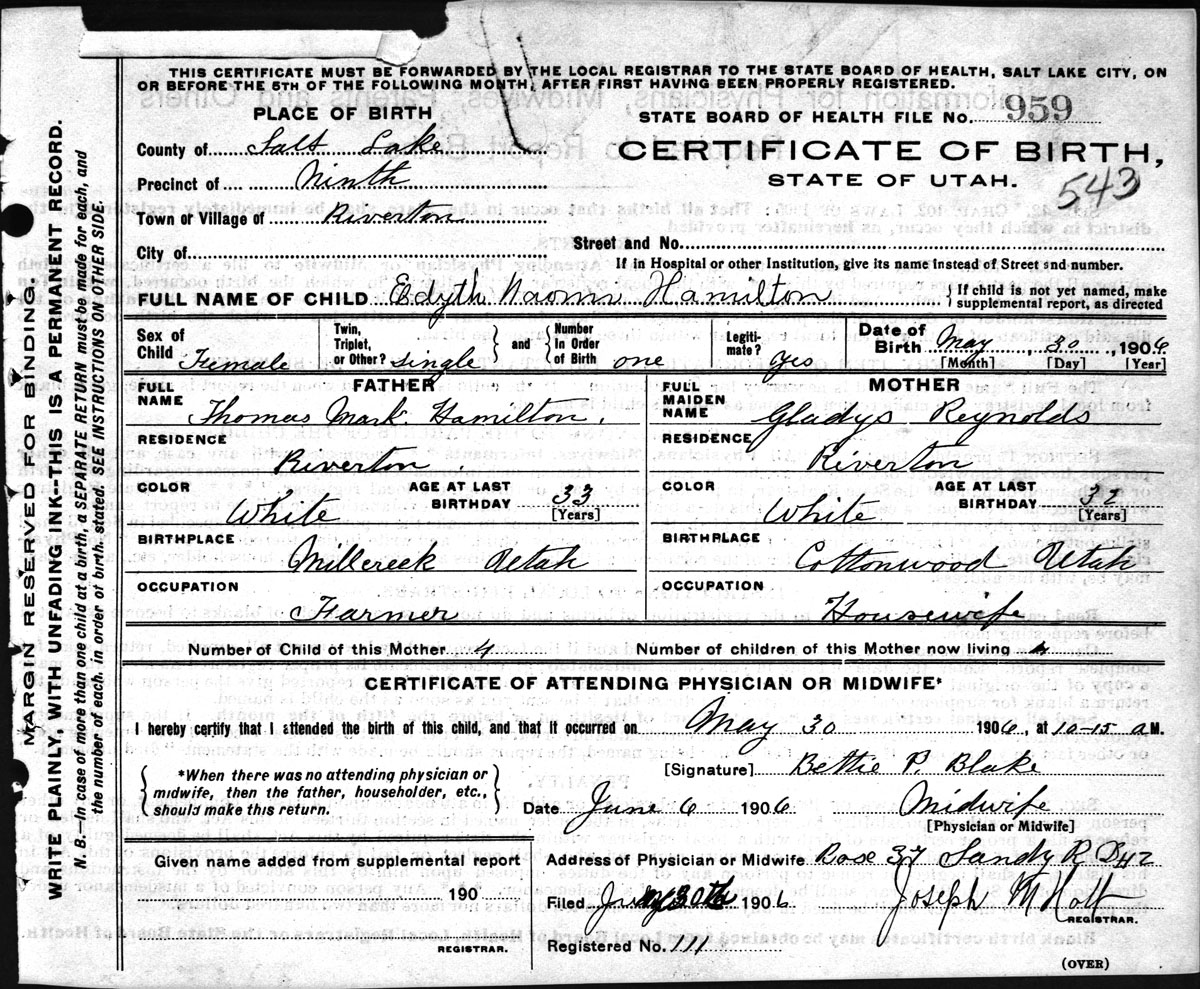 THIS CERTIFICATE MUST BE FORWARDED BY THE LOCAL REGISTRAR TO THE STATE BOARD OF HEALTH, SALT LAKE CITY, ON
OR BEFORE THE 5TH OF THE FOLLOWING MONTH, AFTER FIRST HAVING BEEN PROPERLY REGISTERED.
PLACE OF BIRTH
STATE BOARD OF HEALTH FILE No. 959
County of Salt Lake
CERTIFICATE OF BIRTH,
STATE OF UTAH.
543
Precinct of Ninth
Town or Village of Riverton
City of
Street and No.
If in Hospital or other Institution, give its name instead of Street and number.
FULL NAME OF CHILD Edyth Naomi Hamilton { If child is not yet named, make
supplemental report, as directed
Sex of Child Female
Twin, Triplet, or Other? single } and { Number in Order of Birth one
Legiti- mate? yes
Date of Birth May, 30, 1906
[Month] [Day] [Year]
FATHER
FULL NAME Thomas Mark Hamilton
RESIDENCE
Riverton
COLOR White AGE AT LAST BIRTHDAY 33
[Years]
BIRTHPLACE
Millcreek Utah
OCCUPATION
Farmer
MOTHER
FULL MAIDEN NAME Gladys Reynolds
RESIDENCE
Riverton
COLOR White AGE AT LAST BIRTHDAY 32
[Years]
BIRTHPLACE
Cottonwood Utah
OCCUPATION
Housewife
Number of Child of this Mother 4 Number of children of this Mother now living 4
CERTIFICATE OF ATTENDING PHYSICIAN OR MIDWIFE*
I hereby certify that I attended the birth of this child, and that it occurred on May 30 1906, at 10-15 a M.
{ *When there was no attending physician or
midwife, then the father, householder, etc.,
should make this return. }
[Signature] Bettie P. Blake
Date June 6 1906 Midwife
[Physician or Midwife]
Given name added from supplemental report
190
REGISTRAR.
Address of Physician or Midwife Box 37 Sandy R D #2
Filed 30th 1906 Joseph M Holt
REGISTRAR.
Registered No. 111
(OVER)
MARGIN RESERVED FOR BINDING.
WRITE PLAINLY, WITH UNFADING INK--THIS IS A PERMANENT RECORD.
N. B.—In case of more than one child at a birth, a SEPARATE RETURN must be made for each, and
the number of each, in order of birth, stated. SEE INSTRUCTIONS ON OTHER SIDE.